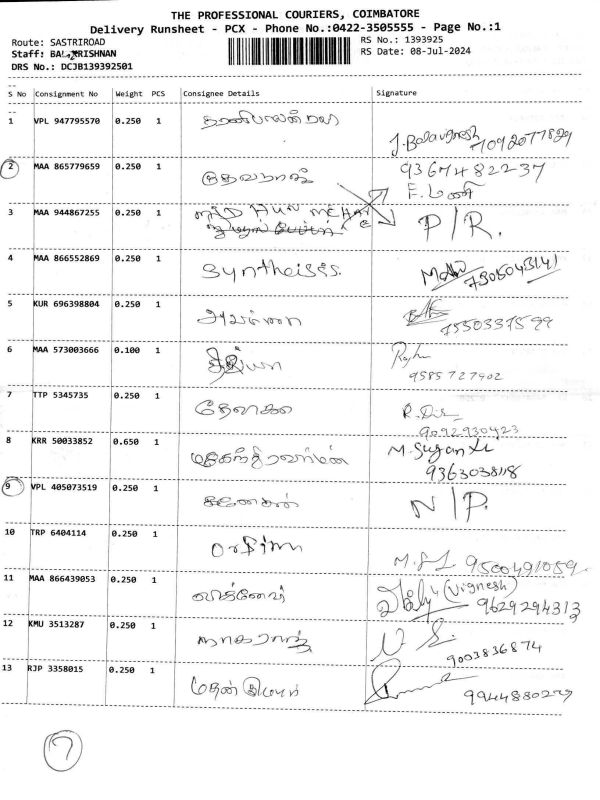 THE PROFESSIONAL COURIERS, COIMBATORE
Delivery Runsheet - PCX - Phone No.:0422-3505555 - Page No.:1
Route: SASTRIROAD
RS No.: 1393925
Staff: BALAKRISHNAN
RS Date: 08-Jul-2024
DRS No.: DCJB139392501
S No Consignment No Weight PCS Consignee Details Signature
1 VPL 947795570 0.250 1
J. Balavignesh 7092077829
2 MAA 865779659 0.250 1 9367482237
F. மணி
3 MAA 944867255 0.250 1 P/R.
4 MAA 866552869 0.250 1 Syntheises. 7305043141
5 KUR 696398804 0.250 1
7550337599
6 MAA 573003666 0.100 1 திவ்யா
9585727902
7 TTP 5345735 0.250 1 R. Di
9092930423
8 KRR 50033852 0.650 1 M. Suganthi
9363038118
9 VPL 405073519 0.250 1 கணேசன் N/P.
10 TRP 6404114 0.250 1
9500491059
11 MAA 866439053 0.250 1 விக்னேஷ் (Vignesh)
9629294313
12 KMU 3513287 0.250 1 நாகராஜ்
9003836874
13 RJP 3358015 0.250 1
9944880277
7